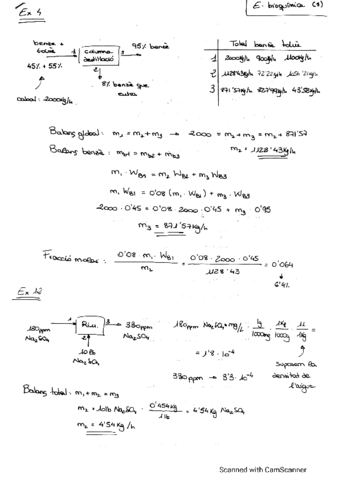 E. bioquímica (1)
Ex 4
benzè + toluè
45% + 55%
columna destil·lació
95% benzè
8% benzè que entra
cabal: 2000Kg/h
1
2
3
Total benzè toluè
1 2000Kg/h 900Kg/h 1100Kg/h
2 1128'43Kg/h 72
3 871'57Kg/h 43'58Kg/h
Balanç global: m₁ = m₂ + m₃ → 2000 = m₂ + m₃ = m₂ + 871'57
m₂ = 1128'43Kg/h
Balanç benzè: mB1 = mB2 + mB3
m₁ · WB1 = m₂ WB2 + m₃ WB3
m₁ WB1 = 0'08 (m₁ · WB1) + m₃ · WB3
2000 · 0'45 = 0'08 · 2000 · 0'45 + m₃ 0'95
m₃ = 871'57Kg/h
Fracció molar: 0'08 · m₁ · WB1 / m₂ = 0'08 · 2000 · 0'45 / 1128'43 = 0'064
6'4%
Ex 12
180ppm Na₂SO₄
1
Riu
3
380ppm Na₂SO₄
2
10 lb Na₂SO₄
180ppm Na₂SO₄ = mg/L · 1g/1000mg · 1Kg/1000g · 1L/1Kg =
= 1'8 · 10⁻⁴
380ppm → 3'8 · 10⁻⁴
Suposem la densitat de l'aigua
Balanç total: m₁ + m₂ = m₃
m₂ = 10lb Na₂SO₄ · 0'454Kg/1lb = 4'54Kg Na₂SO₄
m₂ = 4'54Kg/h
Scanned with CamScanner